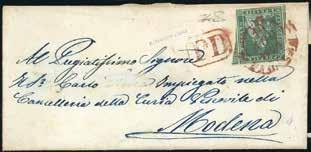 PD
Al Pregiatissimo Signore
Carlo Impiegato nella
Cancelleria della Curia Vescovile di
Modena